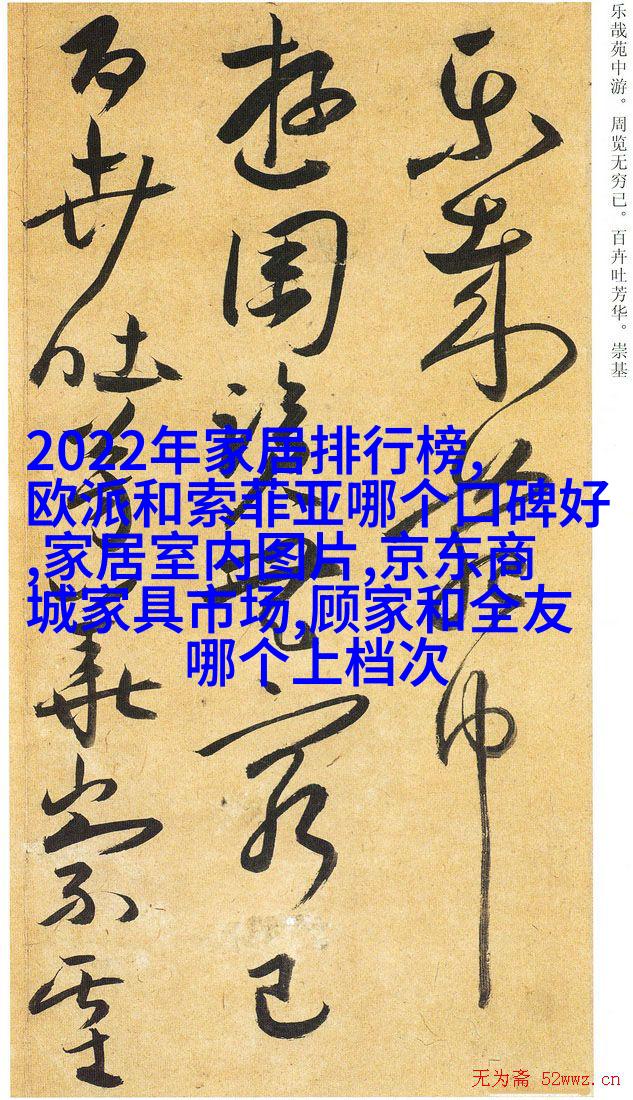 乐哉苑中游。周览无穷已。百卉吐芳华。崇基
樂哉苑中
遊周覽無窮已
百卉吐芳華崇基
2022年家居排行榜,
欧派和索菲亚哪个口碑好
,家居室内图片,京东商
城家具市场,顾家和全友
哪个上档次
无为斋 52wwz.cn